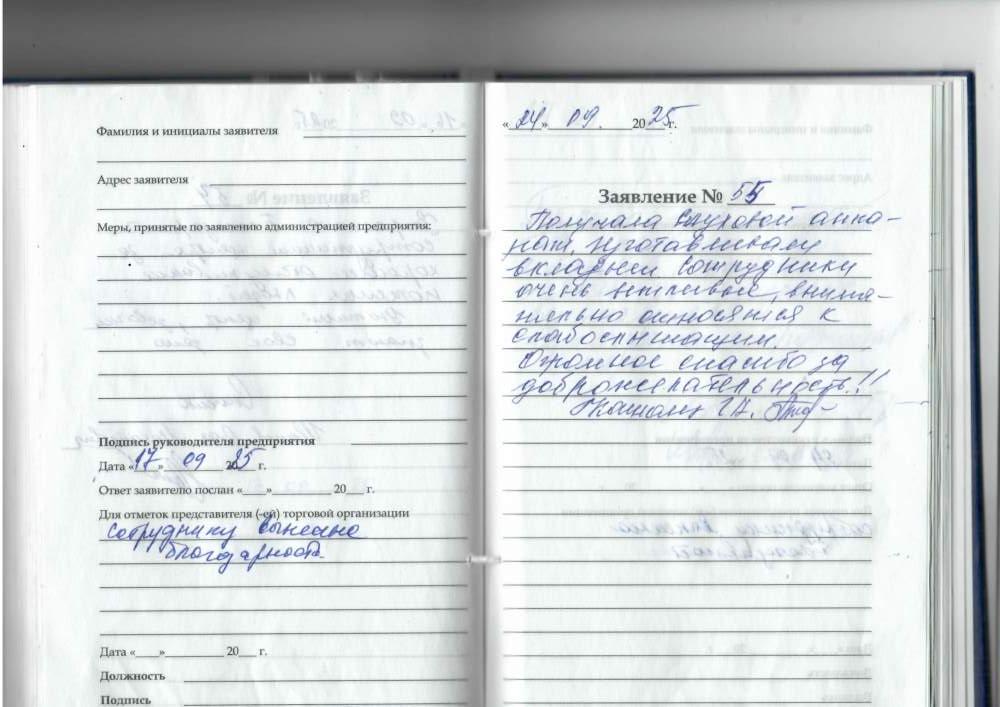 Фамилия и инициалы заявителя
Адрес заявителя
Меры, принятые по заявлению администрацией предприятия:
Подпись руководителя предприятия
Дата «17» 09 2025 г.
Ответ заявителю послан «___» ______ 20___ г.
Для отметок представителя (-ей) торговой организации
Сотруднику вынесена
благодарность
Дата «___» ______ 20___ г.
Должность
Подпись
«24» 09. 2025 г.
Заявление № 55
Получала слуховой аппа-
рат, изготавливали
вкладыш. Сотрудники
очень вежливые, внима-
тельно относятся к
слабослышащим.
Огромное спасибо за
доброжелательность!!